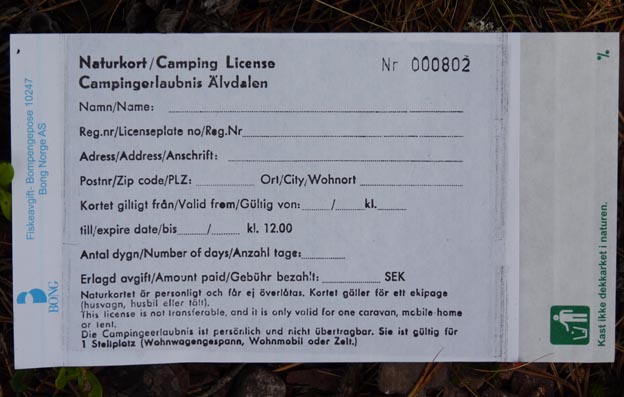 Naturkort/Camping License Nr 000802
Campingerlaubnis Älvdalen
Namn/Name:
Reg.nr/Licenseplate no/Reg.Nr
Adress/Address/Anschrift:
Postnr/Zip code/PLZ: Ort/City/Wohnort
Kortet giltigt från/Valid from/Gültig von: / kl.
till/expire date/bis / kl. 12.00
Antal dygn/Number of days/Anzahl tage:
Erlagd avgift/Amount paid/Gebühr bezahlt: SEK
Naturkortet är personligt och får ej överlåtas. Kortet gäller för ett ekipage
(husvagn, husbil eller tält).
This license is not transferable, and it is only valid for one caravan, mobile home
or tent.
Die Campingeerlaubnis ist persönlich und nicht übertragbar. Sie ist gültig für
1 Stellplatz (Wohnwagengespann, Wohnmobil oder Zelt.)
Fiskeavgift- Bompengepose 10247
Bong Norge AS
BONG
Kast ikke dekkarket i naturen.